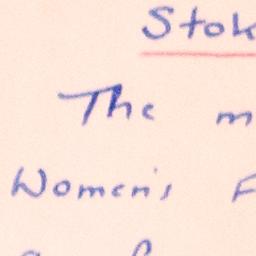 Stok
The m
Women's F